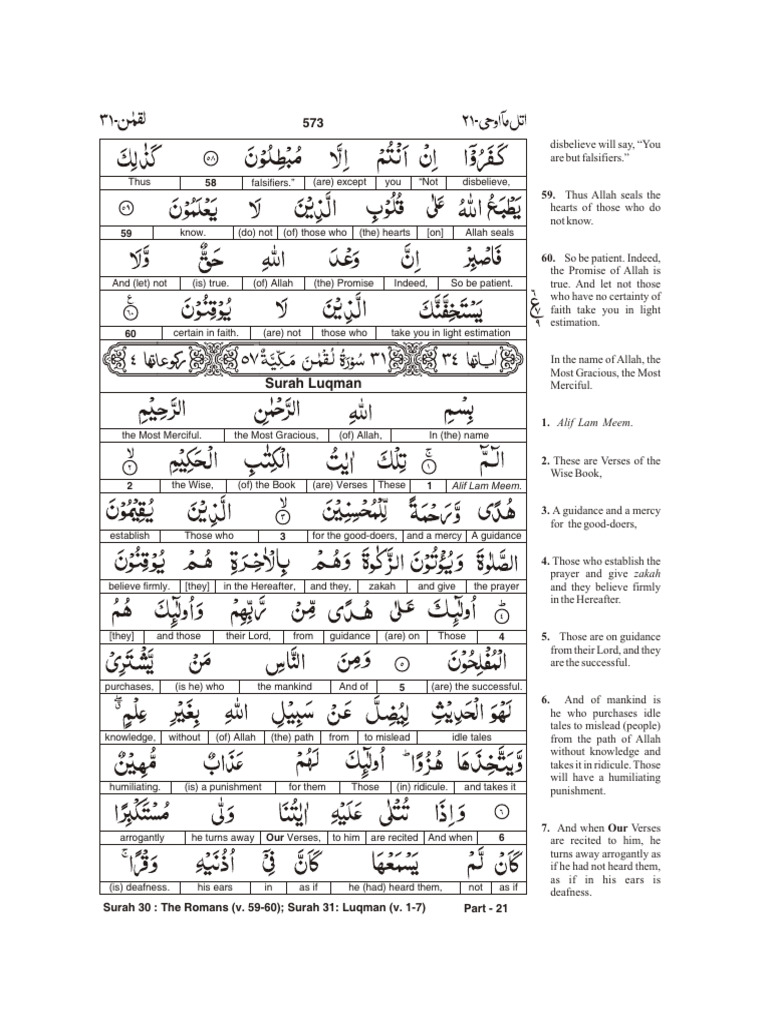 لقمٰن-٣١ 573 اتل مآ اوحی-٢١
كَفَرُوْۤا اِنْ اَنْتُمْ اِلَّا مُبْطِلُوْنَ ﴿۵۸﴾ كَذٰلِكَ
disbelieve, “Not you (are) except falsifiers.” 58 Thus
يَطْبَعُ اللّٰهُ عَلٰى قُلُوْبِ الَّذِيْنَ لَا يَعْلَمُوْنَ ﴿۵۹﴾
Allah seals [on] (the) hearts (of) those who (do) not know. 59
فَاصْبِرْ اِنَّ وَعْدَ اللّٰهِ حَقٌّ وَّلَا
So be patient. Indeed, (the) Promise (of) Allah (is) true. And (let) not
يَسْتَخِفَّنَّكَ الَّذِيْنَ لَا يُوْقِنُوْنَ ﴿۶۰﴾
take you in light estimation those who (are) not certain in faith. 60
اٰیاتها ٣٤ ٣١ سُوْرَةُ لُقْمٰنَ مَكِّيَّةٌ ٥٧ ركوعاتها ٤
Surah Luqman
بِسْمِ اللّٰهِ الرَّحْمٰنِ الرَّحِيْمِ
In (the) name (of) Allah, the Most Gracious, the Most Merciful.
الٓمّٓ ﴿۱﴾ تِلْكَ اٰيٰتُ الْكِتٰبِ الْحَكِيْمِ ﴿۲﴾
Alif Lam Meem. 1 These (are) Verses (of) the Book the Wise, 2
هُدًى وَّرَحْمَةً لِّلْمُحْسِنِيْنَ ﴿۳﴾ الَّذِيْنَ يُقِيْمُوْنَ
A guidance and a mercy for the good-doers, 3 Those who establish
الصَّلٰوةَ وَيُؤْتُوْنَ الزَّكٰوةَ وَهُمْ بِالْاٰخِرَةِ هُمْ يُوْقِنُوْنَ
the prayer and give zakah and they, in the Hereafter, [they] believe firmly.
﴿۴﴾ اُولٰٓئِكَ عَلٰى هُدًى مِّنْ رَّبِّهِمْ وَاُولٰٓئِكَ هُمُ
4 Those (are) on guidance from their Lord, and those [they]
الْمُفْلِحُوْنَ ﴿۵﴾ وَمِنَ النَّاسِ مَنْ يَّشْتَرِيْ
(are) the successful. 5 And of the mankind (is he) who purchases,
لَهْوَ الْحَدِيْثِ لِيُضِلَّ عَنْ سَبِيْلِ اللّٰهِ بِغَيْرِ عِلْمٍ
idle tales to mislead from (the) path (of) Allah without knowledge,
وَّيَتَّخِذَهَا هُزُوًا اُولٰٓئِكَ لَهُمْ عَذَابٌ مُّهِيْنٌ
and takes it (in) ridicule. Those for them (is) a punishment humiliating.
﴿۶﴾ وَاِذَا تُتْلٰى عَلَيْهِ اٰيٰتُنَا وَلّٰى مُسْتَكْبِرًا
6 And when are recited to him Our Verses, he turns away arrogantly
كَاَنْ لَّمْ يَسْمَعْهَا كَاَنَّ فِيْۤ اُذُنَيْهِ وَقْرًا
as if not he (had) heard them, as if in his ears (is) deafness.
Surah 30 : The Romans (v. 59-60); Surah 31: Luqman (v. 1-7) Part - 21
disbelieve will say, “You
are but falsifiers.”
59. Thus Allah seals the
hearts of those who do
not know.
60. So be patient. Indeed,
the Promise of Allah is
true. And let not those
who have no certainty of
faith take you in light
estimation.
In the name of Allah, the
Most Gracious, the Most
Merciful.
1. Alif Lam Meem.
2. These are Verses of the
Wise Book,
3. A guidance and a mercy
for the good-doers,
4. Those who establish the
prayer and give zakah
and they believe firmly
in the Hereafter.
5. Those are on guidance
from their Lord, and they
are the successful.
6. And of mankind is
he who purchases idle
tales to mislead (people)
from the path of Allah
without knowledge and
takes it in ridicule. Those
will have a humiliating
punishment.
7. And when Our Verses
are recited to him, he
turns away arrogantly as
if he had not heard them,
as if in his ears is
deafness.